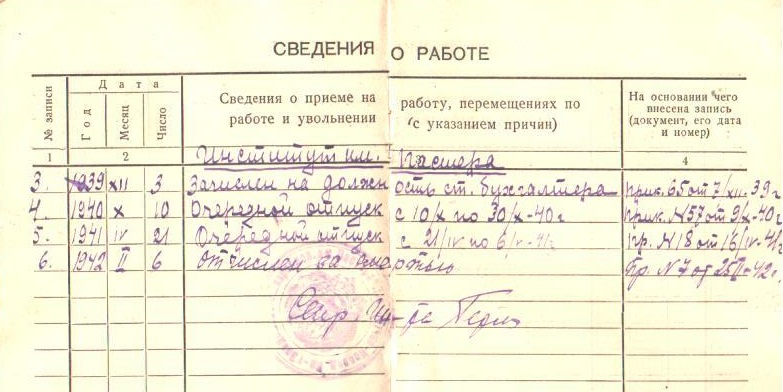 СВЕДЕНИЯ О РАБОТЕ
№ записи
Дата
Год
Месяц
Число
Сведения о приеме на работу, перемещениях по
работе и увольнении (с указанием причин)
На основании чего
внесена запись
(документ, его дата
и номер)
1 2 3 4
Институт им. Пастера
3. 1939 XII 3 Зачислен на должность ст. бухгалтера прик. 65 от 7/XII-39 г
4. 1940 X 10 Очередной отпуск с 10/X по 30/X-40 г прик. N57 от 9/X-40 г
5. 1941 IV 21 Очередной отпуск с 21/IV по 6/V-41 г Пр. N18 от 16/IV-41 г
6. 1942 II 6 Отчислен за смертью Пр. N7 от 25/II-42 г.
Секр. Ин-та